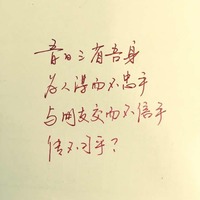 吾日三省吾身
为人谋而不忠乎
与朋友交而不信乎
传不习乎？